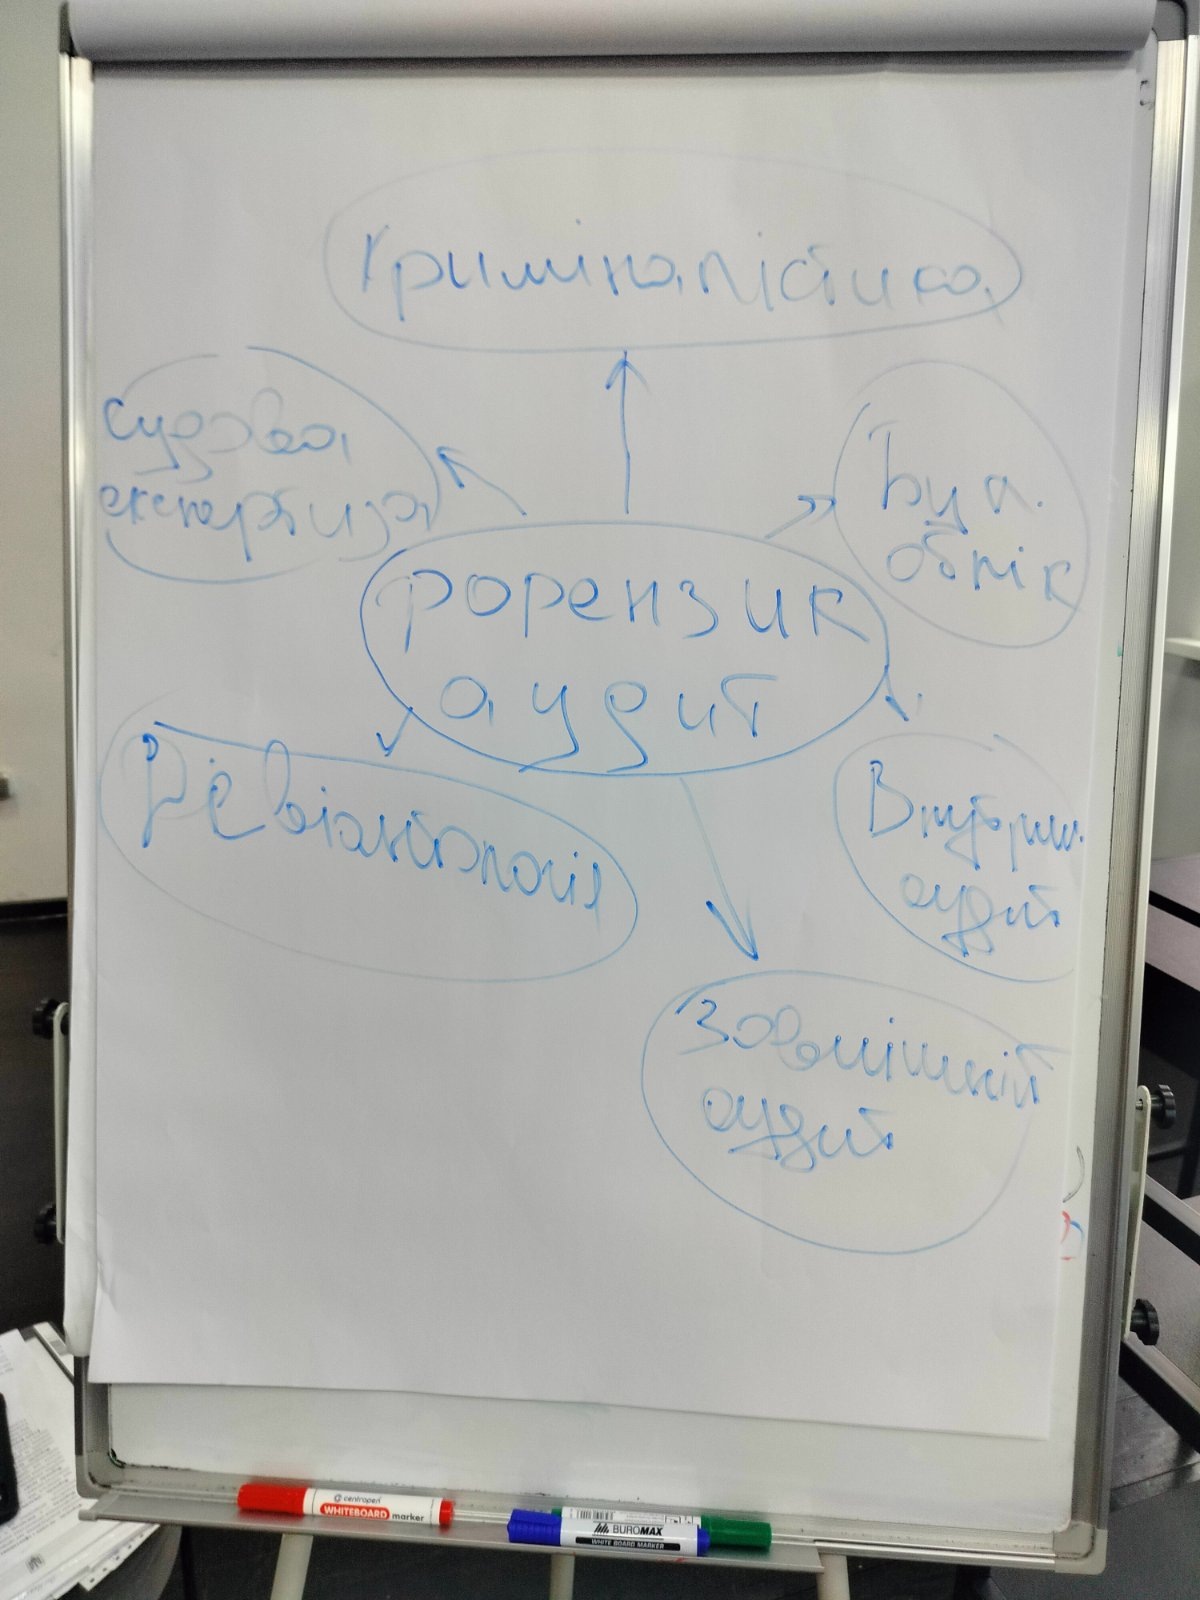 Криміналістика
судова
експертиза
Бух.
облік
форензик
аудит
Девіантологія
Внутрішн.
аудит
Зовнішній
аудит
centropen
WHITEBOARD marker
BUROMAX
WHITE BOARD MARKER